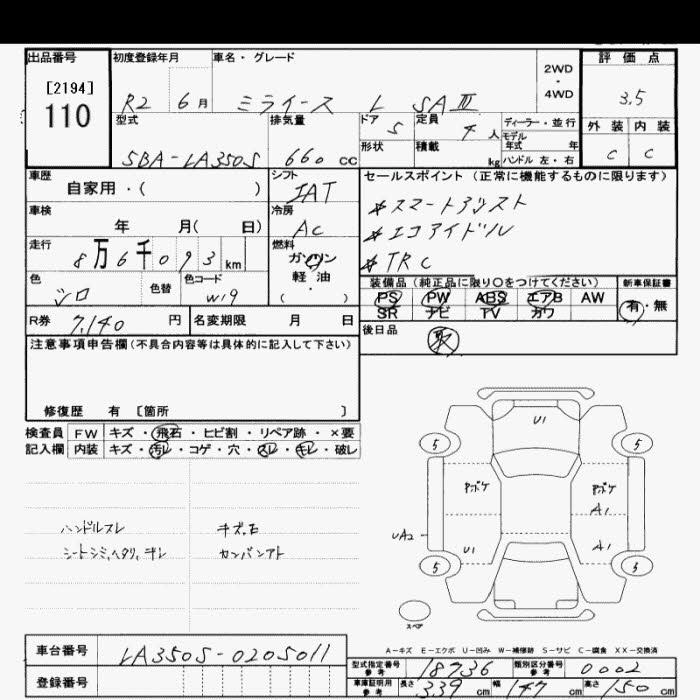 出品番号 初度登録年月 車名・グレード 2WD・4WD 評価点
[2194]
110
R2 6月 ミライース L SAⅢ 3.5
型式 排気量 ドア 5 定員 4人 ディーラー・並行 外装 内装
モデル年式 年
SBA-LA350S 660cc 形状 積載 kg ハンドル 左・右 C C
車歴 シフト セールスポイント (正常に機能するものに限ります)
自家用・( ) IAT
車検 冷房 *スマートアシスト
年 月( 日) AC *エコアイドル
走行 燃料 *TRC
8万6千093km ガソリン
軽・油
( )
色 色替 色コード 装備品 (純正品に限り○をつけてください) 新車保証書
シロ W19 PS PW ABS エアB AW 有・無
SR ナビ TV カワ
R券 7,140円 名変期限 月 日 後日品
取
注意事項申告欄(不具合内容等は具体的に記入して下さい)
修復歴 有 [箇所 ]
検査員 FW キズ・飛石・ヒビ割・リペア跡・×要
記入欄 内装 キズ・汚レ・コゲ・穴・スレ・キレ・破レ
U1
5 5
Pボケ Pボケ
A1
UA2 U1 A1
5 5
ハンドルスレ キズ,モ
シートシミ,ヘタリ,キレ カンバンアト
スペア
A-キズ E-エクボ U-凹み W-補修跡 S-サビ C-腐食 XX-交換済
車台番号 LA350S-0205011
型式指定番号 参考 18736 類別区分番号 参考 0002
登録番号
車庫証明用 参考 長さ 339cm 幅 147cm 高さ 150cm